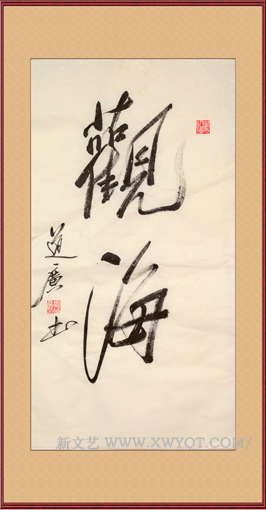 觀海
道廣书
新文艺 WWW.XWYQT.COM/